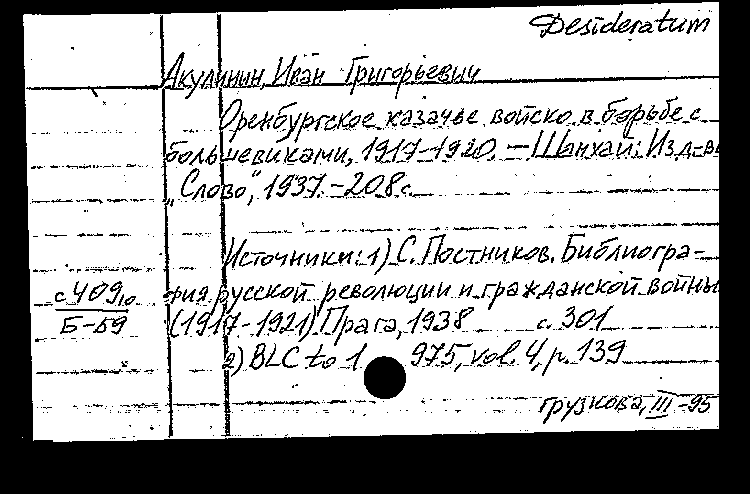 Desideratum
Акулинин, Иван Григорьевич
Оренбургское казачье войско в борьбе с
большевиками, 1917-1920. — Шанхай: Изд-во
„Слово“, 1937. - 208 с.
Источники: 1) С. Постников. Библиогра-
фия русской революции и гражданской войны
(1917-1921) Прага, 1938 с. 301
2) BLC to 1975, vol. 4, p. 139
с 409/10
Б-59
Грузкова, III-95